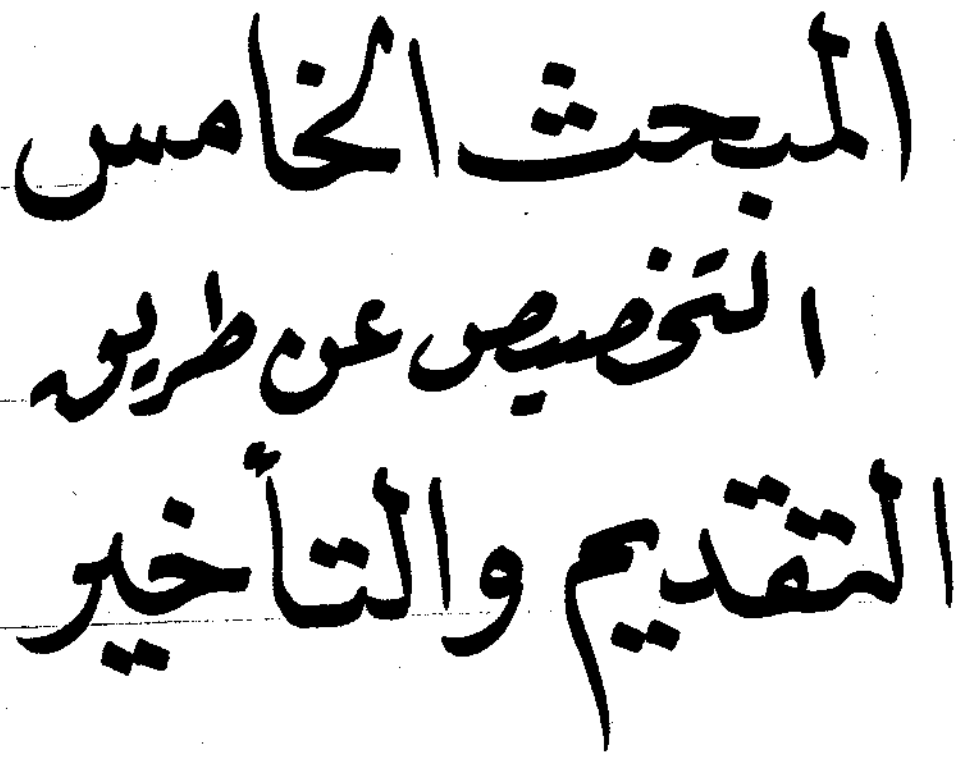 المبحث الخامس
التخصيص عن طريق
التقديم والتأخير